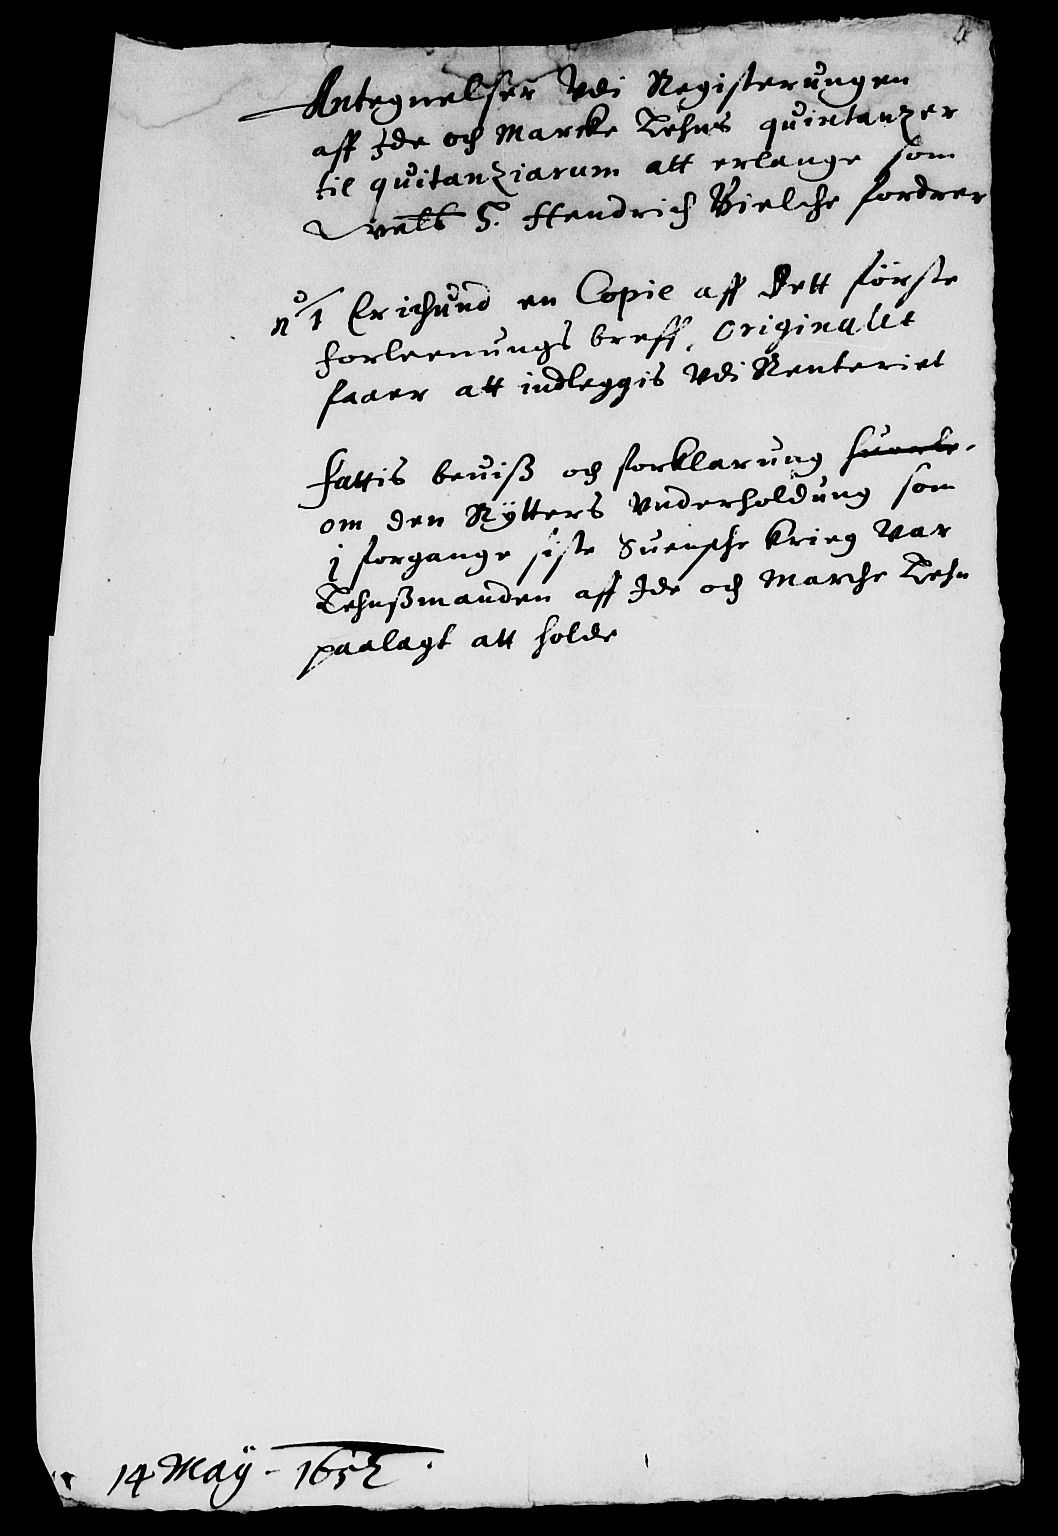 Antegnelser Vdi Registerungen
aff Ide och Marcke Lehns quintanzer
til quitanziarum att erlange som
Velb H. Hendrich Bielche fordrer
no 1 Erichund en Copie aff dett første
forleenungs breff, Originalet
faaer att indleggis Vdi Renteriet
fattis beuiß och forklarung
om den Rÿtters Vnderholdung som
j forgange siste Suensche krieg Var
Lehnßmanden aff Ide och Marche Lehn
paalagt att holde
14 Maÿ - 1652.